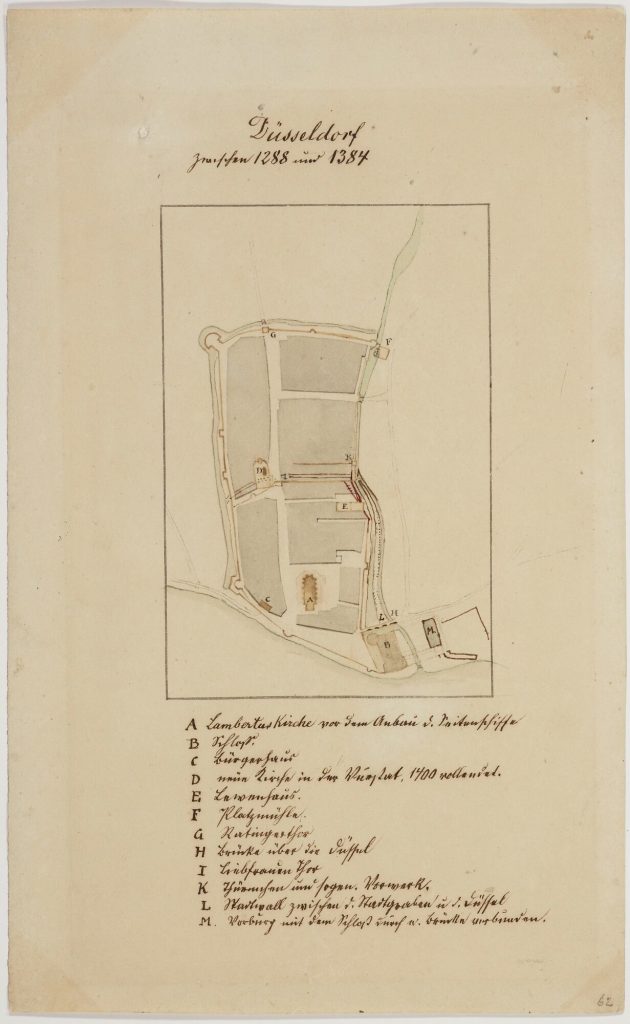 Düsseldorf
zwischen 1288 und 1384
G
F
D
K
E
C
A
L H
B
M.
A Lambertuskirche vor dem Anbau d. Seitenschiffe
B Schloß.
C Bürgerhaus
D neue Kirche in der Vurstat, 1400 vollendet.
E Lewenhaus.
F Platzmühle.
G Ratingerthor
H Brücke über die Düssel
I Liebfrauen Thor
K Thürmchen und sogen. Vorwerk.
L Stadtwall zwischen d. Stadtgraben u. d. Düssel
M. Vorburg mit dem Schloß durch e. Brücke verbunden.
62